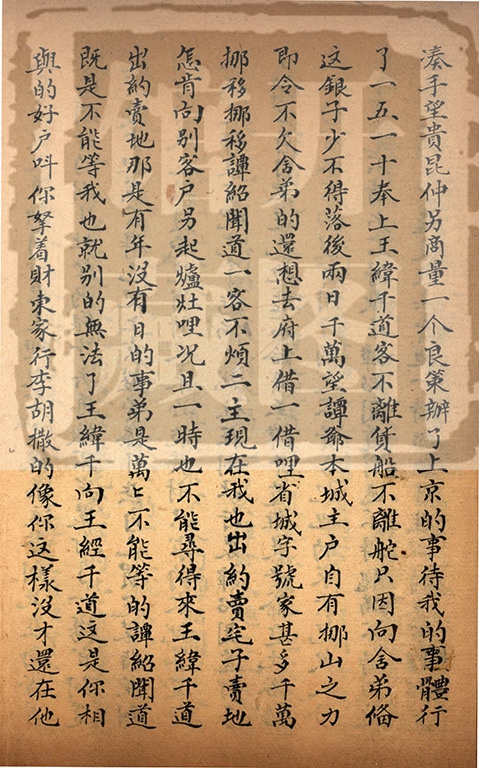 湊手望貴昆仲另商量一个良策辦了上京的事待我的事體行
了一五一十奉上王緯千道客不離貨船不離舵只因向舍弟俻
這銀子少不得落後兩日千萬望譚爺本城主户自有挪山之力
即令不欠舍弟的還想去府上借一借哩省城字號家甚多千萬
挪移挪移譚紹聞道一客不煩二主現在我也出約賣宅子賣地
怎肯向别客户另起爐灶哩况且一時也不能尋得來王緯千道
出約賣地那是有年沒有日的事弟是萬〻不能等的譚紹聞道
既是不能等我也就别的無法了王緯千向王經千道這是你相
與的好户呌你拏着財東家行李胡撒的像你這樣沒才還在他